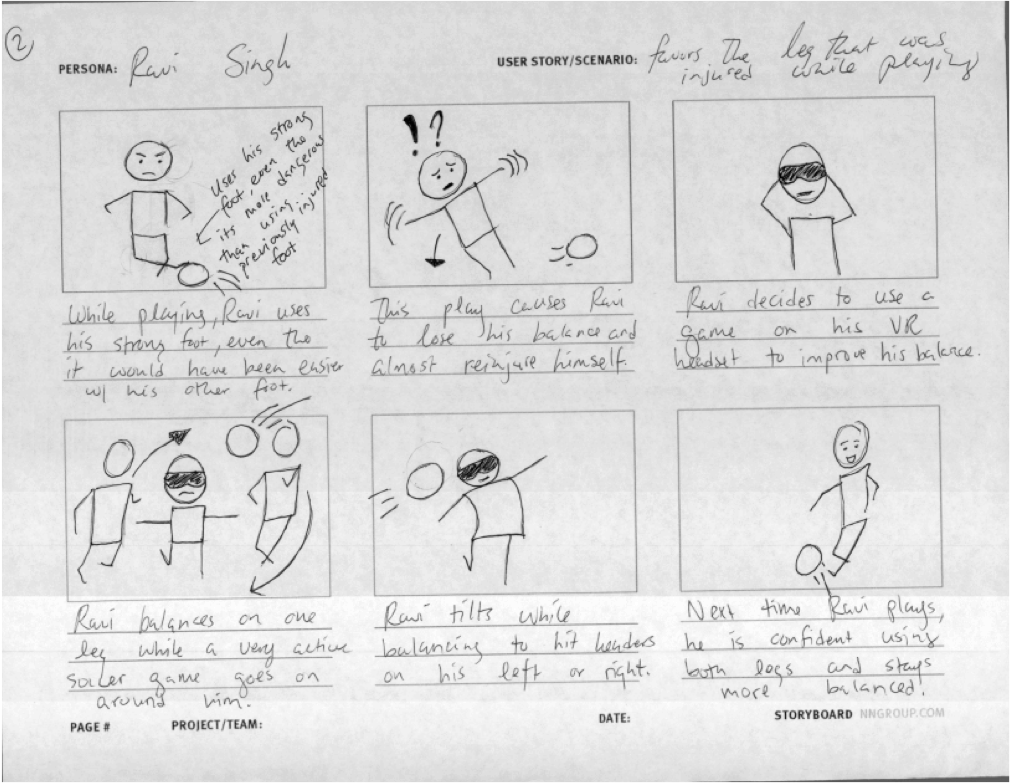 2
PERSONA: Ravi Singh
USER STORY/SCENARIO: favors the leg that was
injured while playing
Uses his strong
foot, even tho
its more dangerous
than using
previously injured
foot
!?
While playing, Ravi uses
his strong foot, even tho
it would have been easier
w/ his other foot.
This play causes Ravi
to lose his balance and
almost reinjure himself.
Ravi decides to use a
game on his VR
headset to improve his balance.
Ravi balances on one
leg while a very active
soccer game goes on
around him.
Ravi tilts while
balancing to hit headers
on his left or right.
Next time Ravi plays,
he is confident using
both legs and stays
more balanced!
PAGE # PROJECT/TEAM: DATE: STORYBOARD NNGROUP.COM